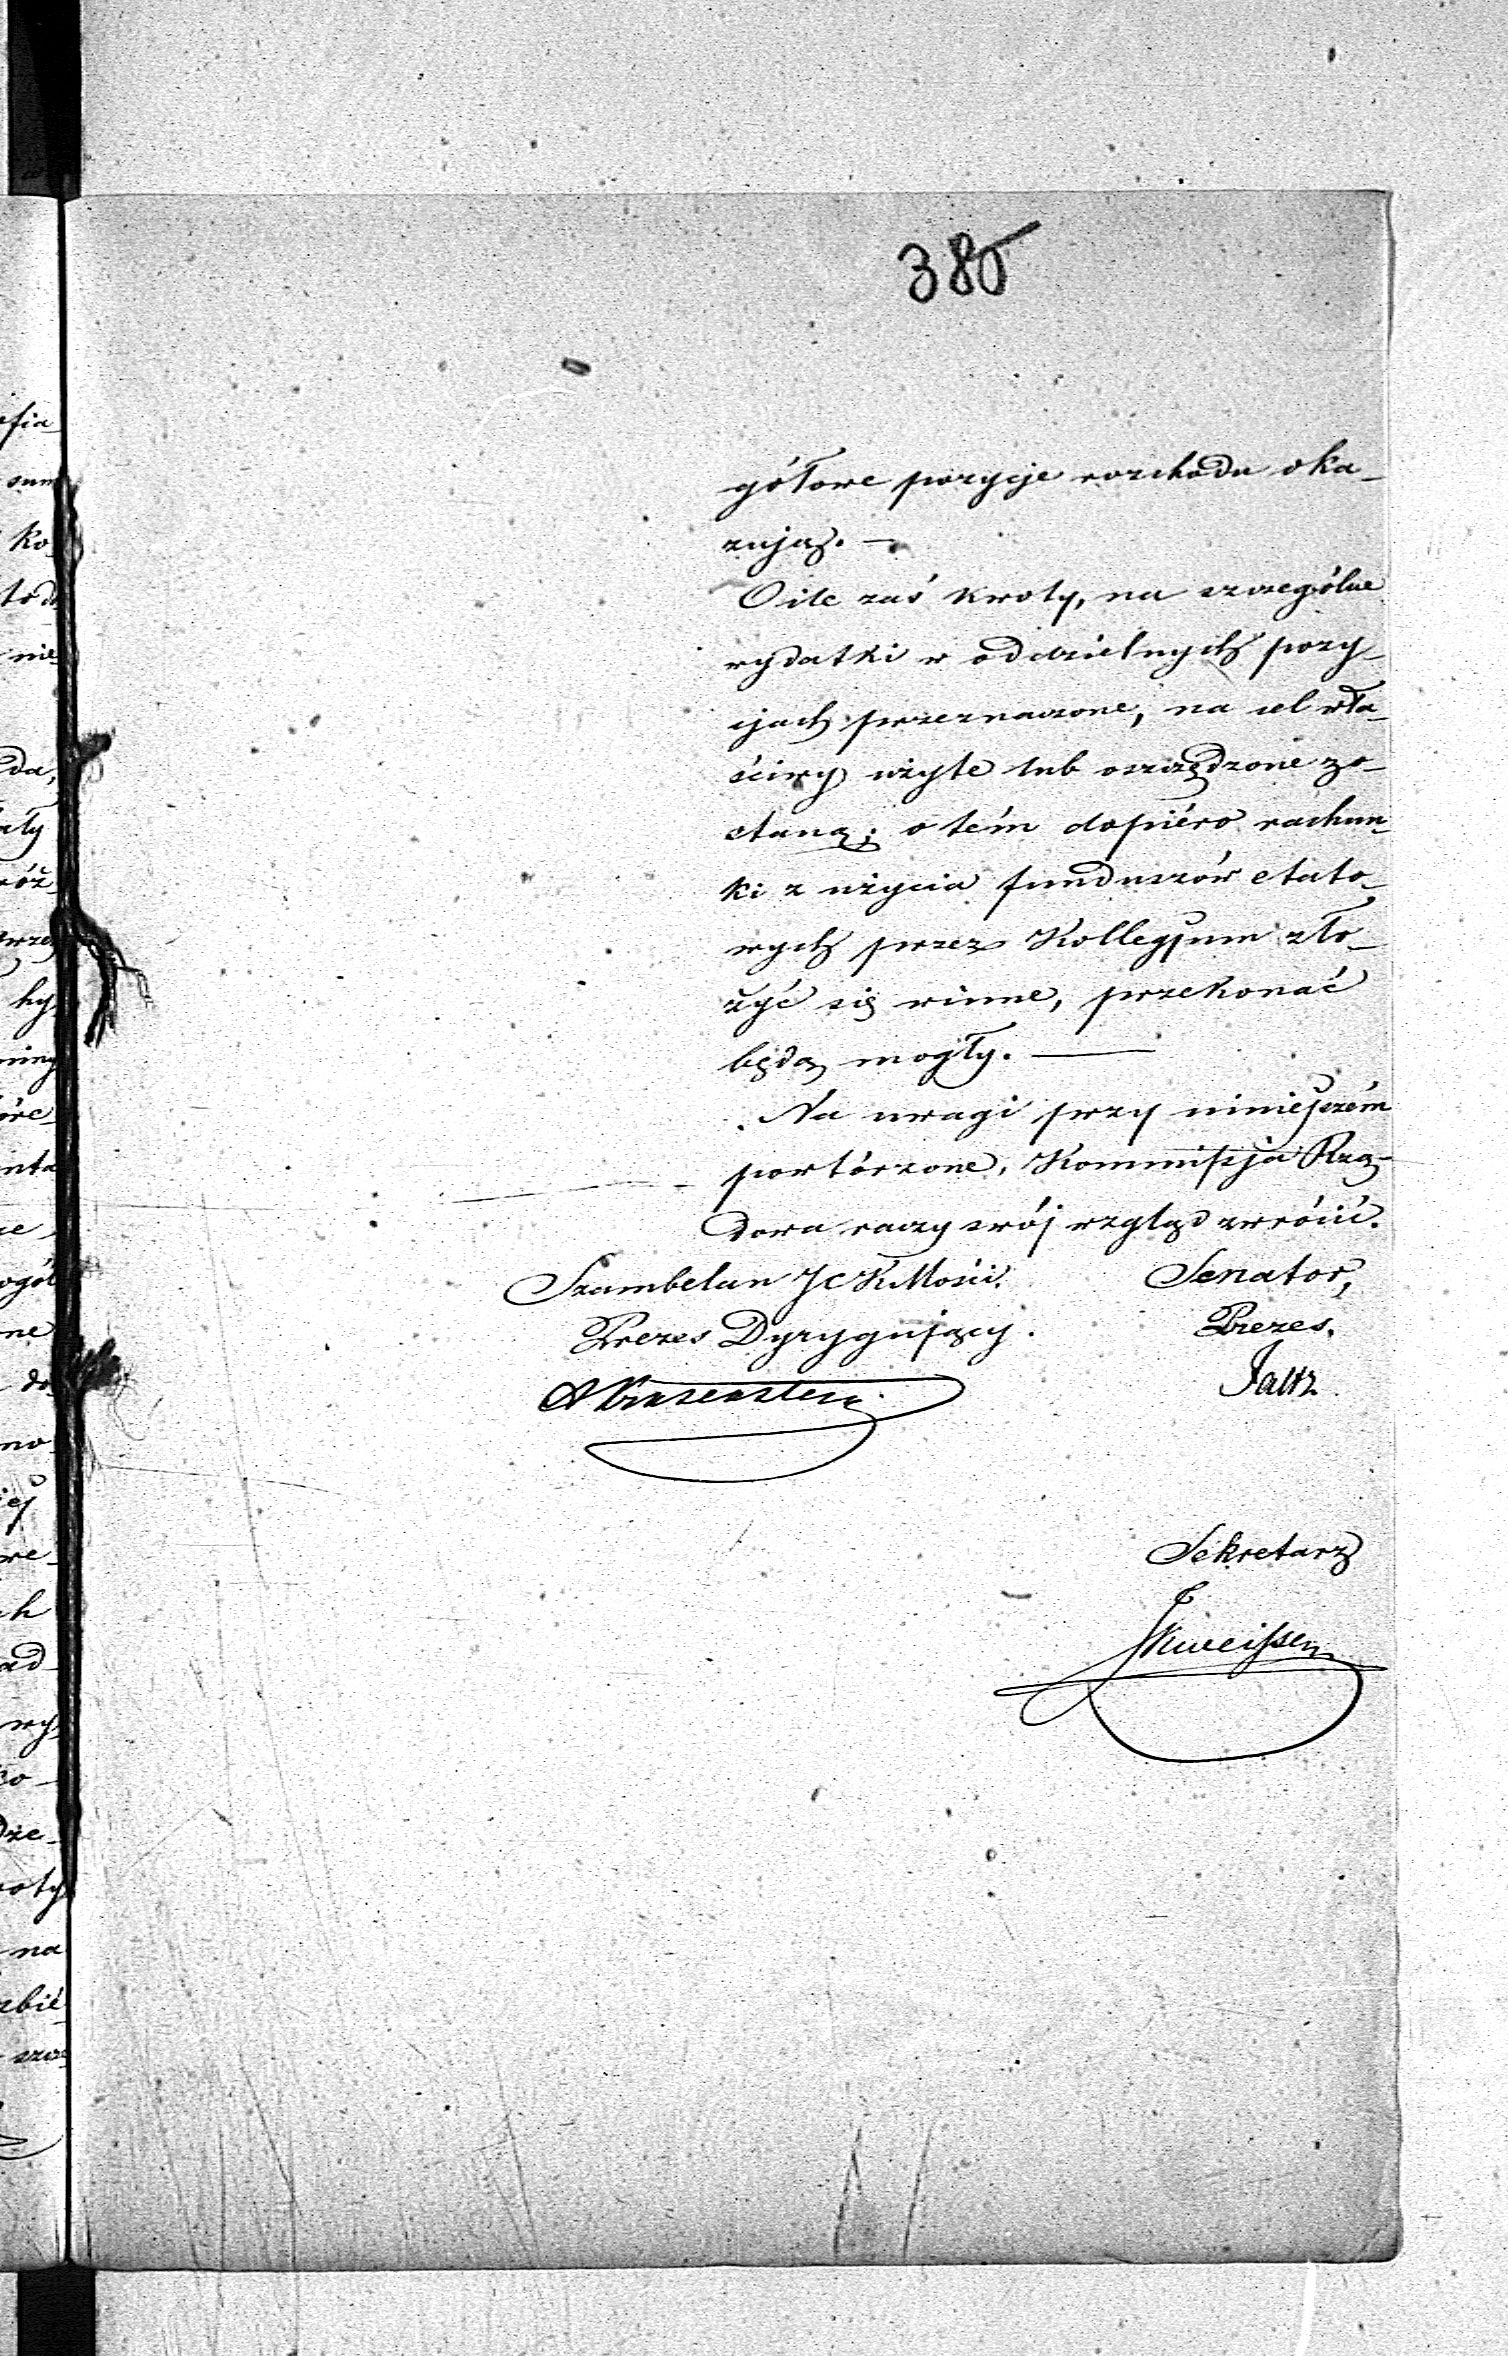 380
gółowe pozycje rozchodu oka-
zują. —
O ile zaś kwoty, na szczególne
wydatki w oddzielnych pozy-
cjach przeznaczone, na cel wła-
ściwy użyte lub oszczędzone zo-
staną; o tém dopiéro rachun-
ki z użycia funduszów etato-
wych przez Kollegjum zło-
żyć się winne, przekonać
będą mogły. —
Na uwagi przy niniejszém
powtórzone, Kommissja Rzą-
dowa raczy swój wzgląd zwrócić.
Szambelan JCKMości. Senator,
Prezes Dyrygujący. Prezes.
Sekretarz